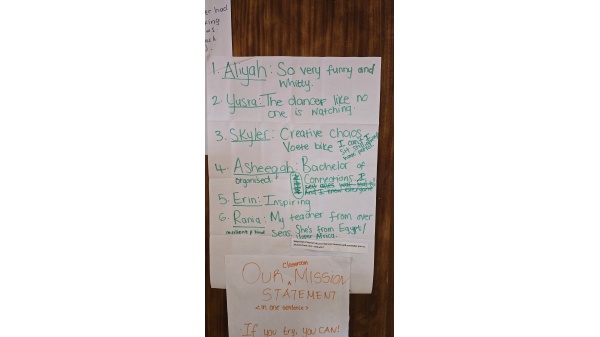 er had
1. Aliyah: So very funny and
Whitty.
2. Yusra: The dancer like no
one is watching.
3. Skyler: Creative chaos
Voete bike I can't
sit still I
4. Asheeqah: Bachelor of
organised. Connections I
and I know everyone
5. Erin: Inspiring
6. Rania: My teacher from over
seas. She's from Egypt/
Africa.
Classroom
OUR MISSION
STATEMENT
in one sentence
If you try, you CAN!